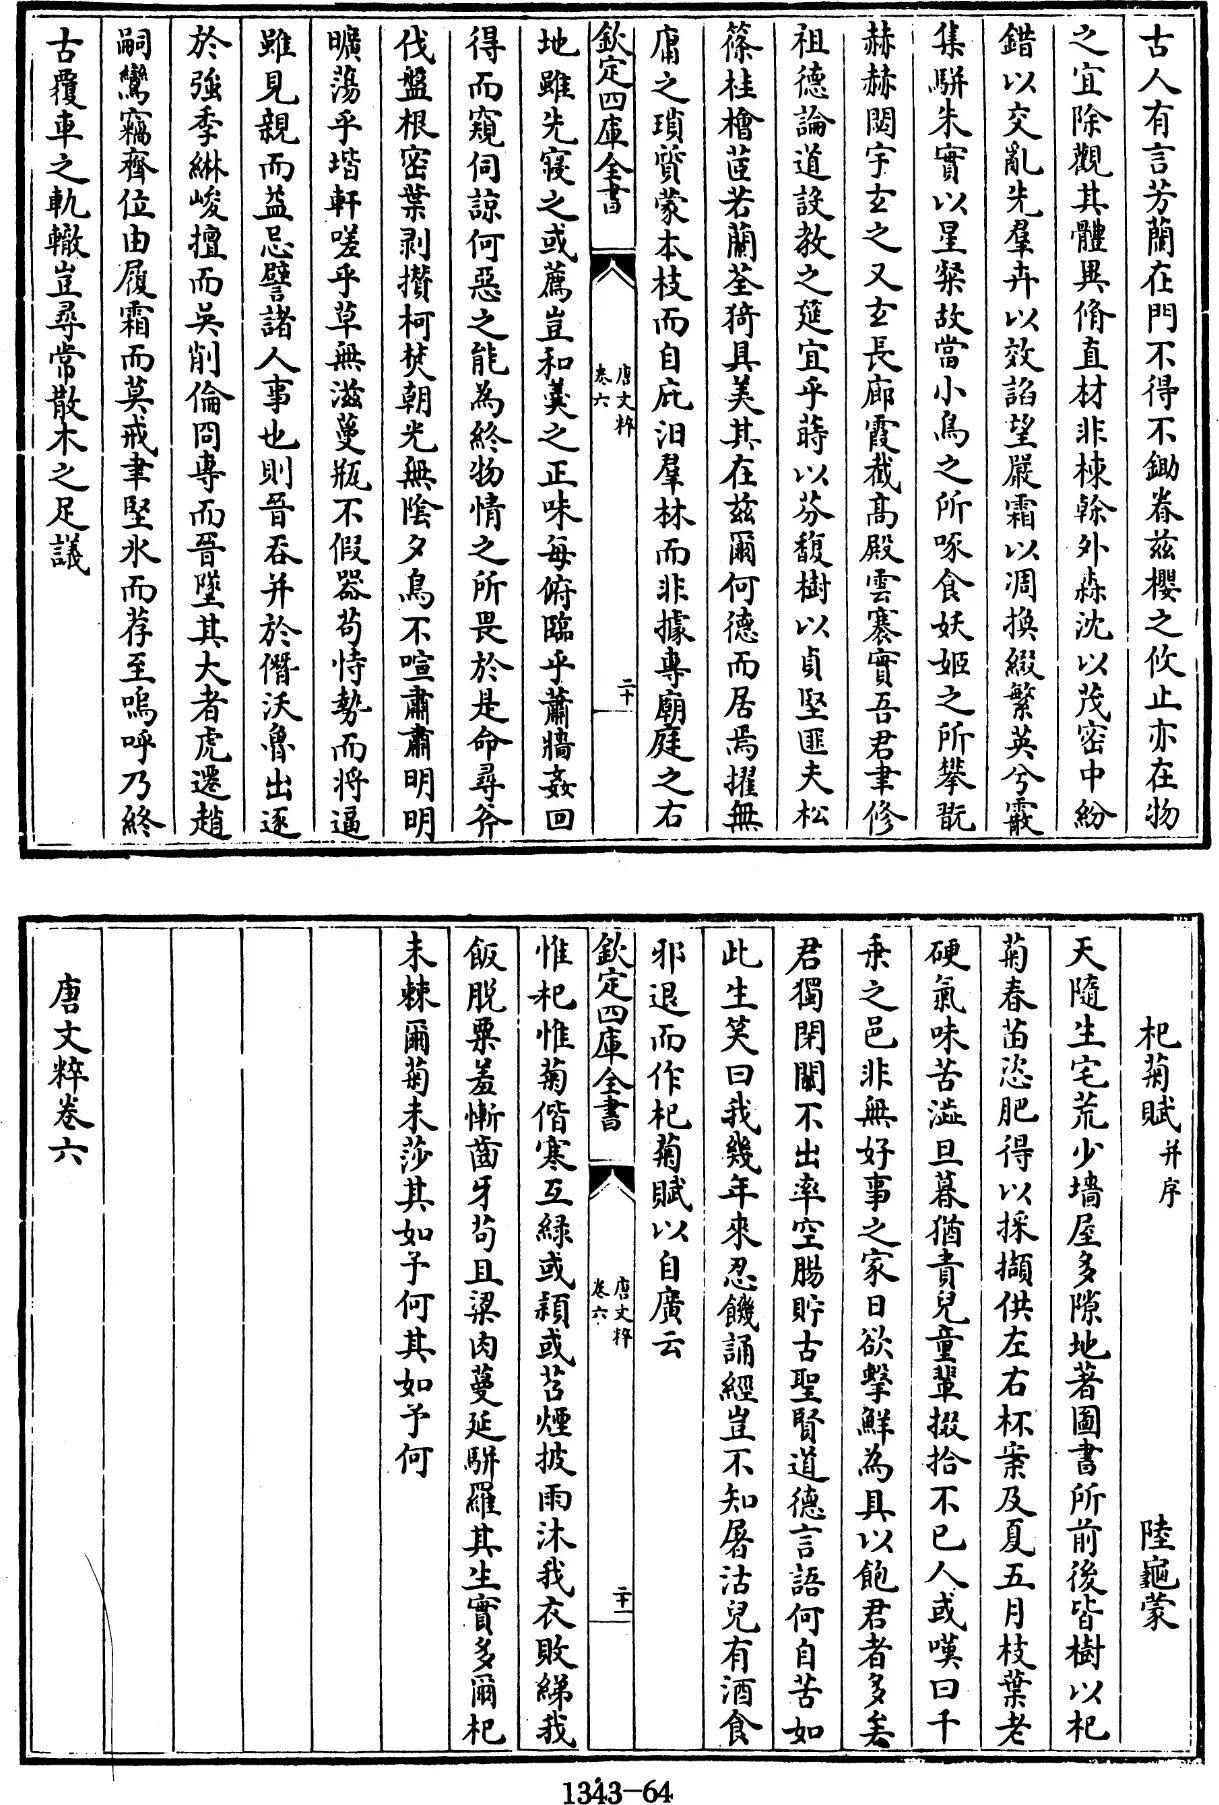 古人有言芳蘭在門不得不鋤眷兹櫻之攸止亦在物
之宜除觀其體異脩直材非棟幹外森沈以茂密中紛
錯以交亂先羣卉以效諂望嚴霜以凋換綴繁英兮霰
集駢朱實以星粲故當小鳥之所啄食妖姬之所攀翫
赫赫閟宇玄之又玄長廊霞截髙殿雲褰實吾君聿修
祖德論道設教之筵宜乎蒔以芬馥樹以貞堅匪夫松
篠桂檜茝若蘭荃猗具美其在兹爾何德而居焉擢無
庸之瑣質蒙本枝而自庇汨羣林而非據專廟庭之右
欽定四庫全書
唐文粹
卷六
二十
地雖先寢之或薦豈和羹之正味每俯臨乎蕭牆姦回
得而窺伺諒何惡之能為終物情之所畏於是命尋斧
伐盤根密葉剥攅柯焚朝光無陰夕鳥不喧肅肅明明
曠蕩乎堦軒嗟乎草無滋蔓瓶不假器茍恃勢而将逼
雖見親而益忌譬諸人事也則晉吞并於僭沃魯出逐
於強季緋峻擅而吳削倫冏專而晉墜其大者虎遷趙
嗣鸞竊齊位由履霜而莫戒聿堅氷而荐至嗚呼乃終
古覆車之軌轍豈尋常散木之足議
杞菊賦并序
陸龜蒙
天隨生宅荒少墻屋多隙地著圖書所前後皆樹以杞
菊春苗恣肥得以採擷供左右杯案及夏五月枝葉老
硬氣味苦澁旦暮猶責兒童輩掇拾不已人或嘆曰千
乗之邑非無好事之家日欲擊鮮為具以飽君者多矣
君獨閉關不出率空腸貯古聖賢道德言語何自苦如
此生笑曰我幾年來忍饑誦經豈不知屠沽兒有酒食
邪退而作杞菊賦以自廣云
欽定四庫全書
唐文粹
卷六
二十一
惟杞惟菊偕寒互緑或穎或苕煙披雨沐我衣敗綈我
飯脱粟羞慚齒牙茍且粱肉蔓延駢羅其生實多爾杞
未棘爾菊未莎其如予何其如予何
唐文粹卷六
1343-64